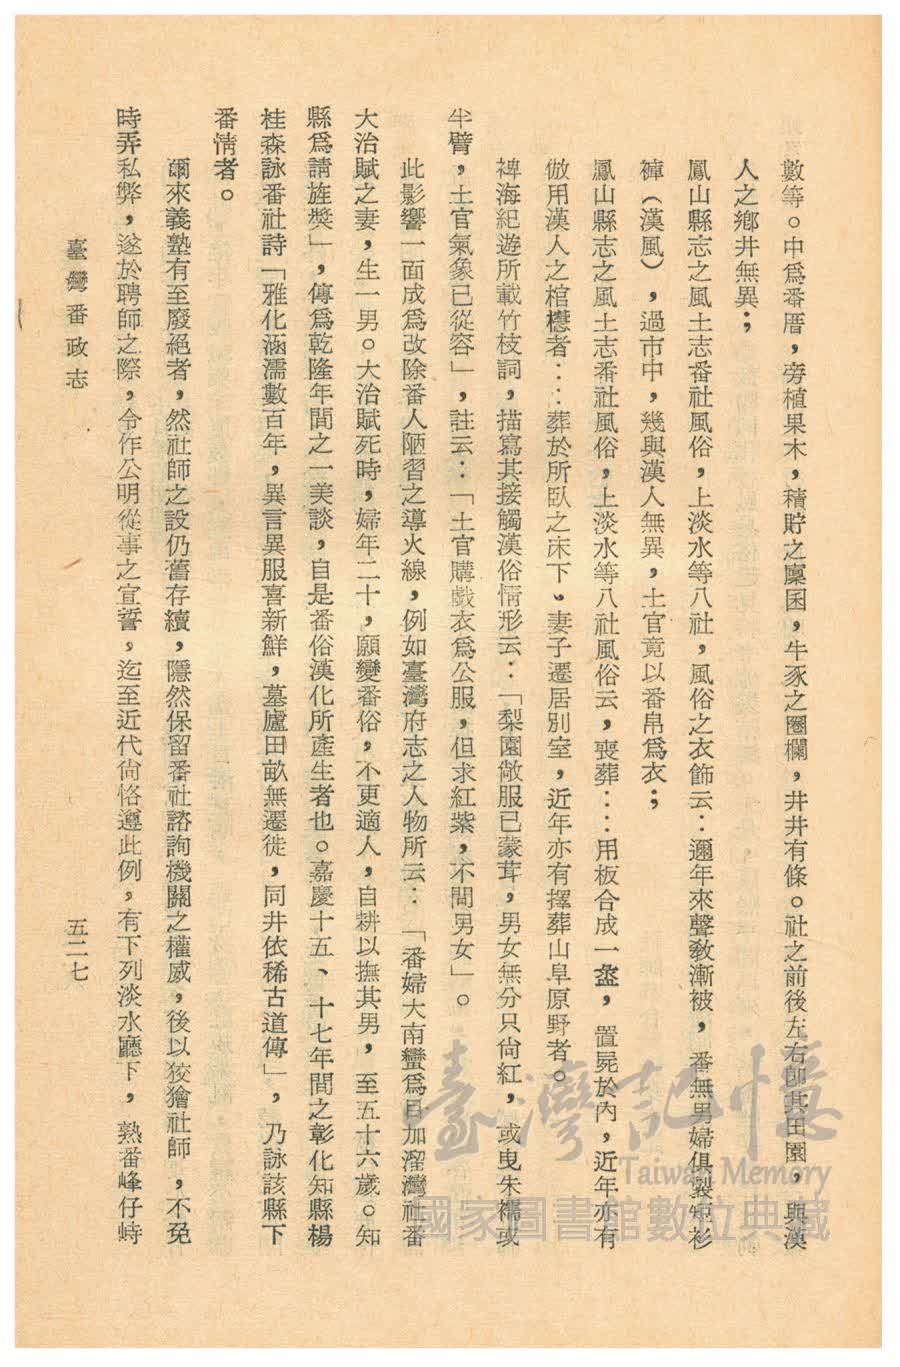 數等。中爲番厝，旁植果木，積貯之廩囷，牛豕之圈欄，井井有條。社之前後左右卽其田園，與漢
人之鄉井無異；
鳳山縣志之風土志番社風俗，上淡水等八社，風俗之衣飾云：邇年來聲敎漸被，番無男婦俱製短衫
褲（漢風），過市中，幾與漢人無異，土官竟以番帛爲衣；
鳳山縣志之風土志番社風俗，上淡水等八社風俗云，喪葬：…用板合成一盔，置屍於內，近年亦有
倣用漢人之棺槥者：…葬於所臥之床下。妻子遷居別室，近年亦有擇葬山阜原野者。
裨海紀遊所載竹枝詞，描寫其接觸漢俗情形云：「梨園敝服已蒙茸，男女無分只尙紅，或曳朱襦或
半臂，土官氣象已從容」，註云：「土官購戲衣爲公服，但求紅紫，不問男女」。
此影響一面成爲改除番人陋習之導火線，例如臺灣府志之人物所云：「番婦大南蠻爲目加溜灣社番
大治賦之妻，生一男。大治賦死時，婦年二十，願變番俗，不更適人，自耕以撫其男，至五十六歲。知
縣爲請旌獎」，傳爲乾隆年間之一美談，自是番俗漢化所產生者也。嘉慶十五、十七年間之彰化知縣楊
桂森詠番社詩「雅化涵濡數百年，異言異服喜新鮮，墓廬田畝無遷徙，同井依稀古道傳」，乃詠該縣下
番情者。
爾來義塾有至廢絕者，然社師之設仍舊存續，隱然保留番社諮詢機關之權威，後以狡獪社師，不免
時弄私弊，遂於聘師之際，令作公明從事之宣誓，迄至近代尙恪遵此例，有下列淡水廳下，熟番峰仔峙
臺灣番政志
五二七
臺灣記憶
Taiwan Memory
國家圖書館數位典藏